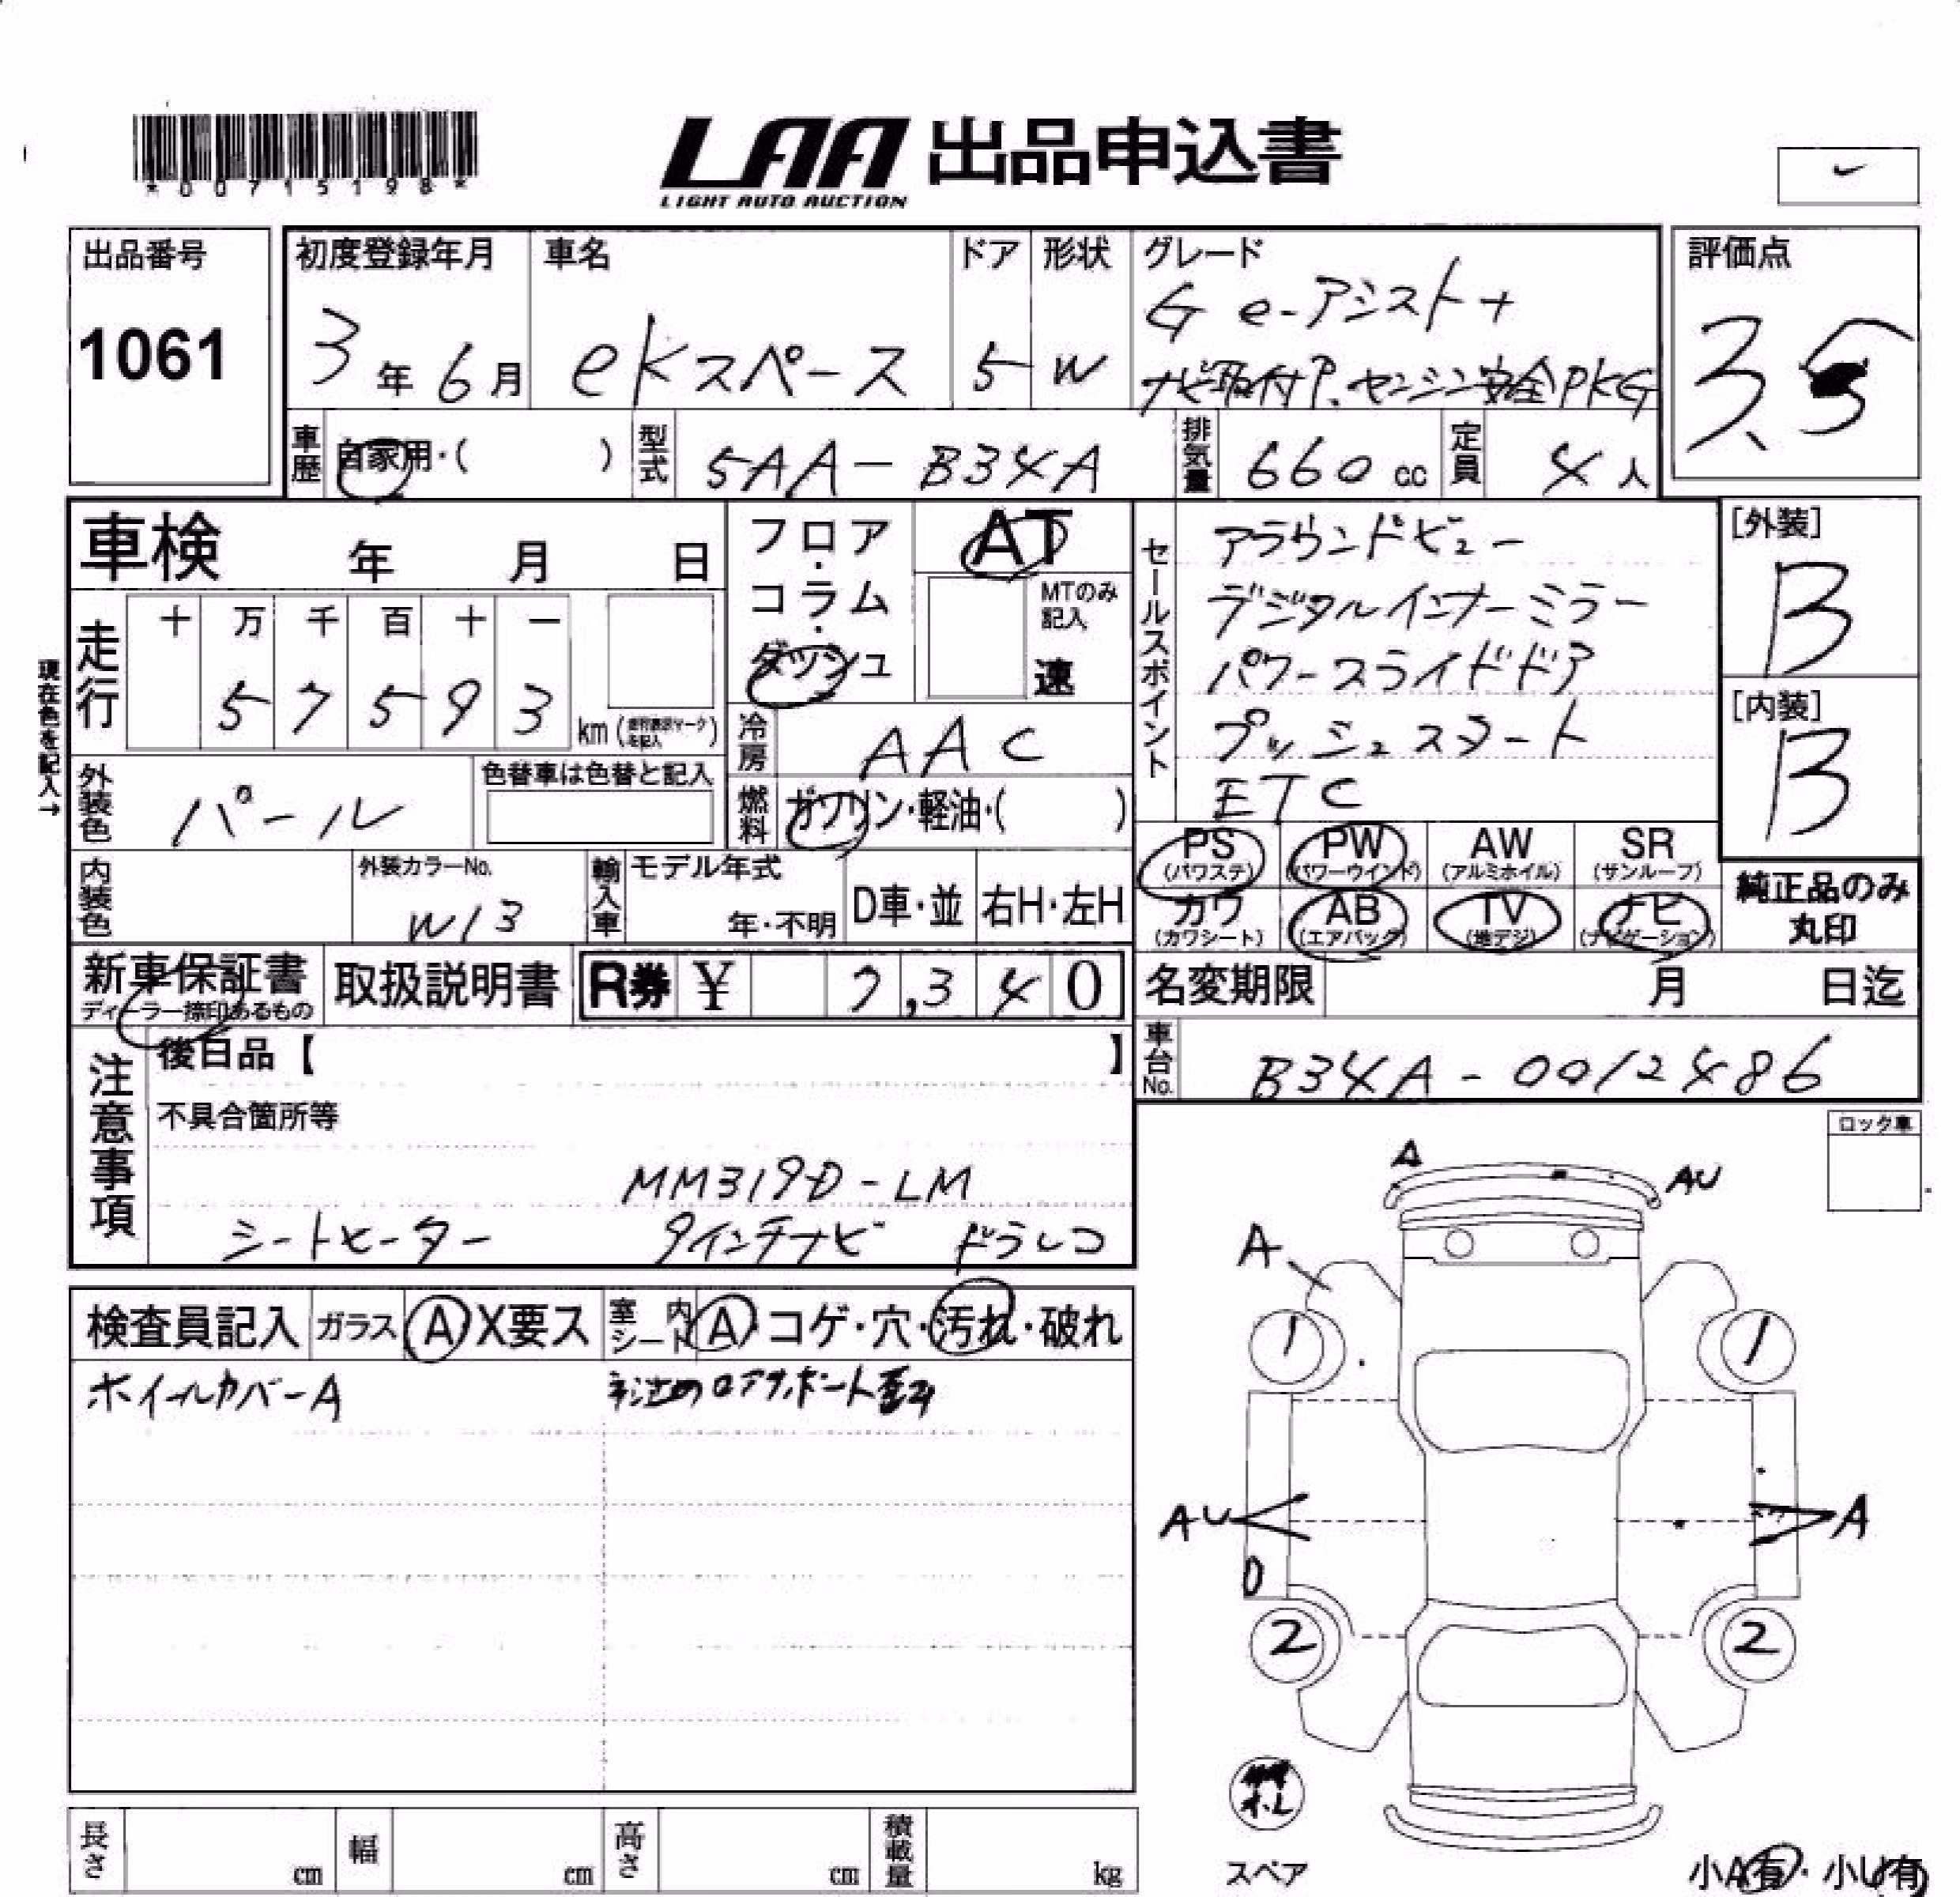 *00715198*
LAA 出品申込書
LIGHT AUTO AUCTION
出品番号
1061
初度登録年月
3年6月
車名
eKスペース
ドア
5
形状
W
グレード
G e-アシスト+
ナビ取付P、センシン安全PKG
評価点
3.5
車歴
自家用・( )
型式
5AA-B34A
排気量
660cc
定員
4人
車検 年 月 日
フロア・コラム・ダッシュ
AT
MTのみ記入
速
セールスポイント
アラウンドビュー
デジタルインナーミラー
パワースライドドア
プッシュスタート
ETC
[外装]
B
[内装]
B
現在色を記入→
走行
十 万 千 百 十 一
5 7 5 9 3
km
冷房
AAC
外装色
パール
色替車は色替と記入
燃料
ガソリン・軽油・( )
内装色
外装カラーNo.
W13
輸入車
モデル年式
年・不明
D車・並
右H・左H
PS (パワステ)
PW (パワーウインド)
AW (アルミホイル)
SR (サンルーフ)
カワ (カワシート)
AB (エアバック)
TV (地デジ)
ナビ (ナビゲーション)
純正品のみ丸印
新車保証書
ディーラー捺印あるもの
取扱説明書
R券 ¥ 7,340
名変期限 月 日迄
車台No.
B34A-0012486
注意事項
後日品【 】
不具合箇所等
MM319D-LM
シートヒーター 9インチナビ ドラレコ
ロック車
検査員記入 ガラス A X要ス 室内シート A コゲ・穴・汚れ・破れ
ホイールカバーA
コアサポート歪み
A
AU
A
1
1
AU
A
2
2
スペア
小A有・小U有
長さ cm
幅 cm
高さ cm
積載量 kg